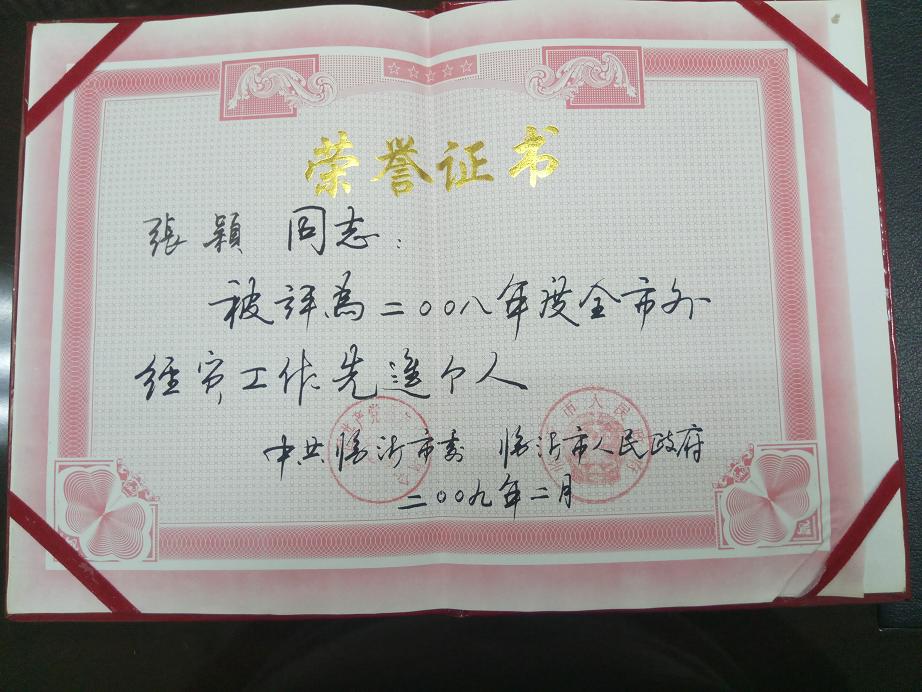 荣誉证书
張穎 同志：
被评為二〇〇八年度全市外
经贸工作先進个人
中共临沂市委 临沂市人民政府
二〇〇九年二月